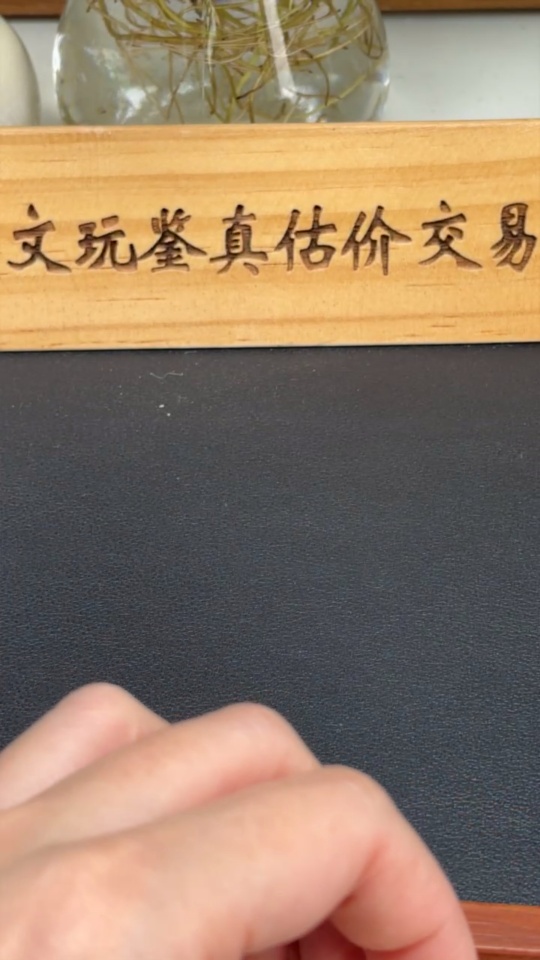 文玩鉴真估价交易